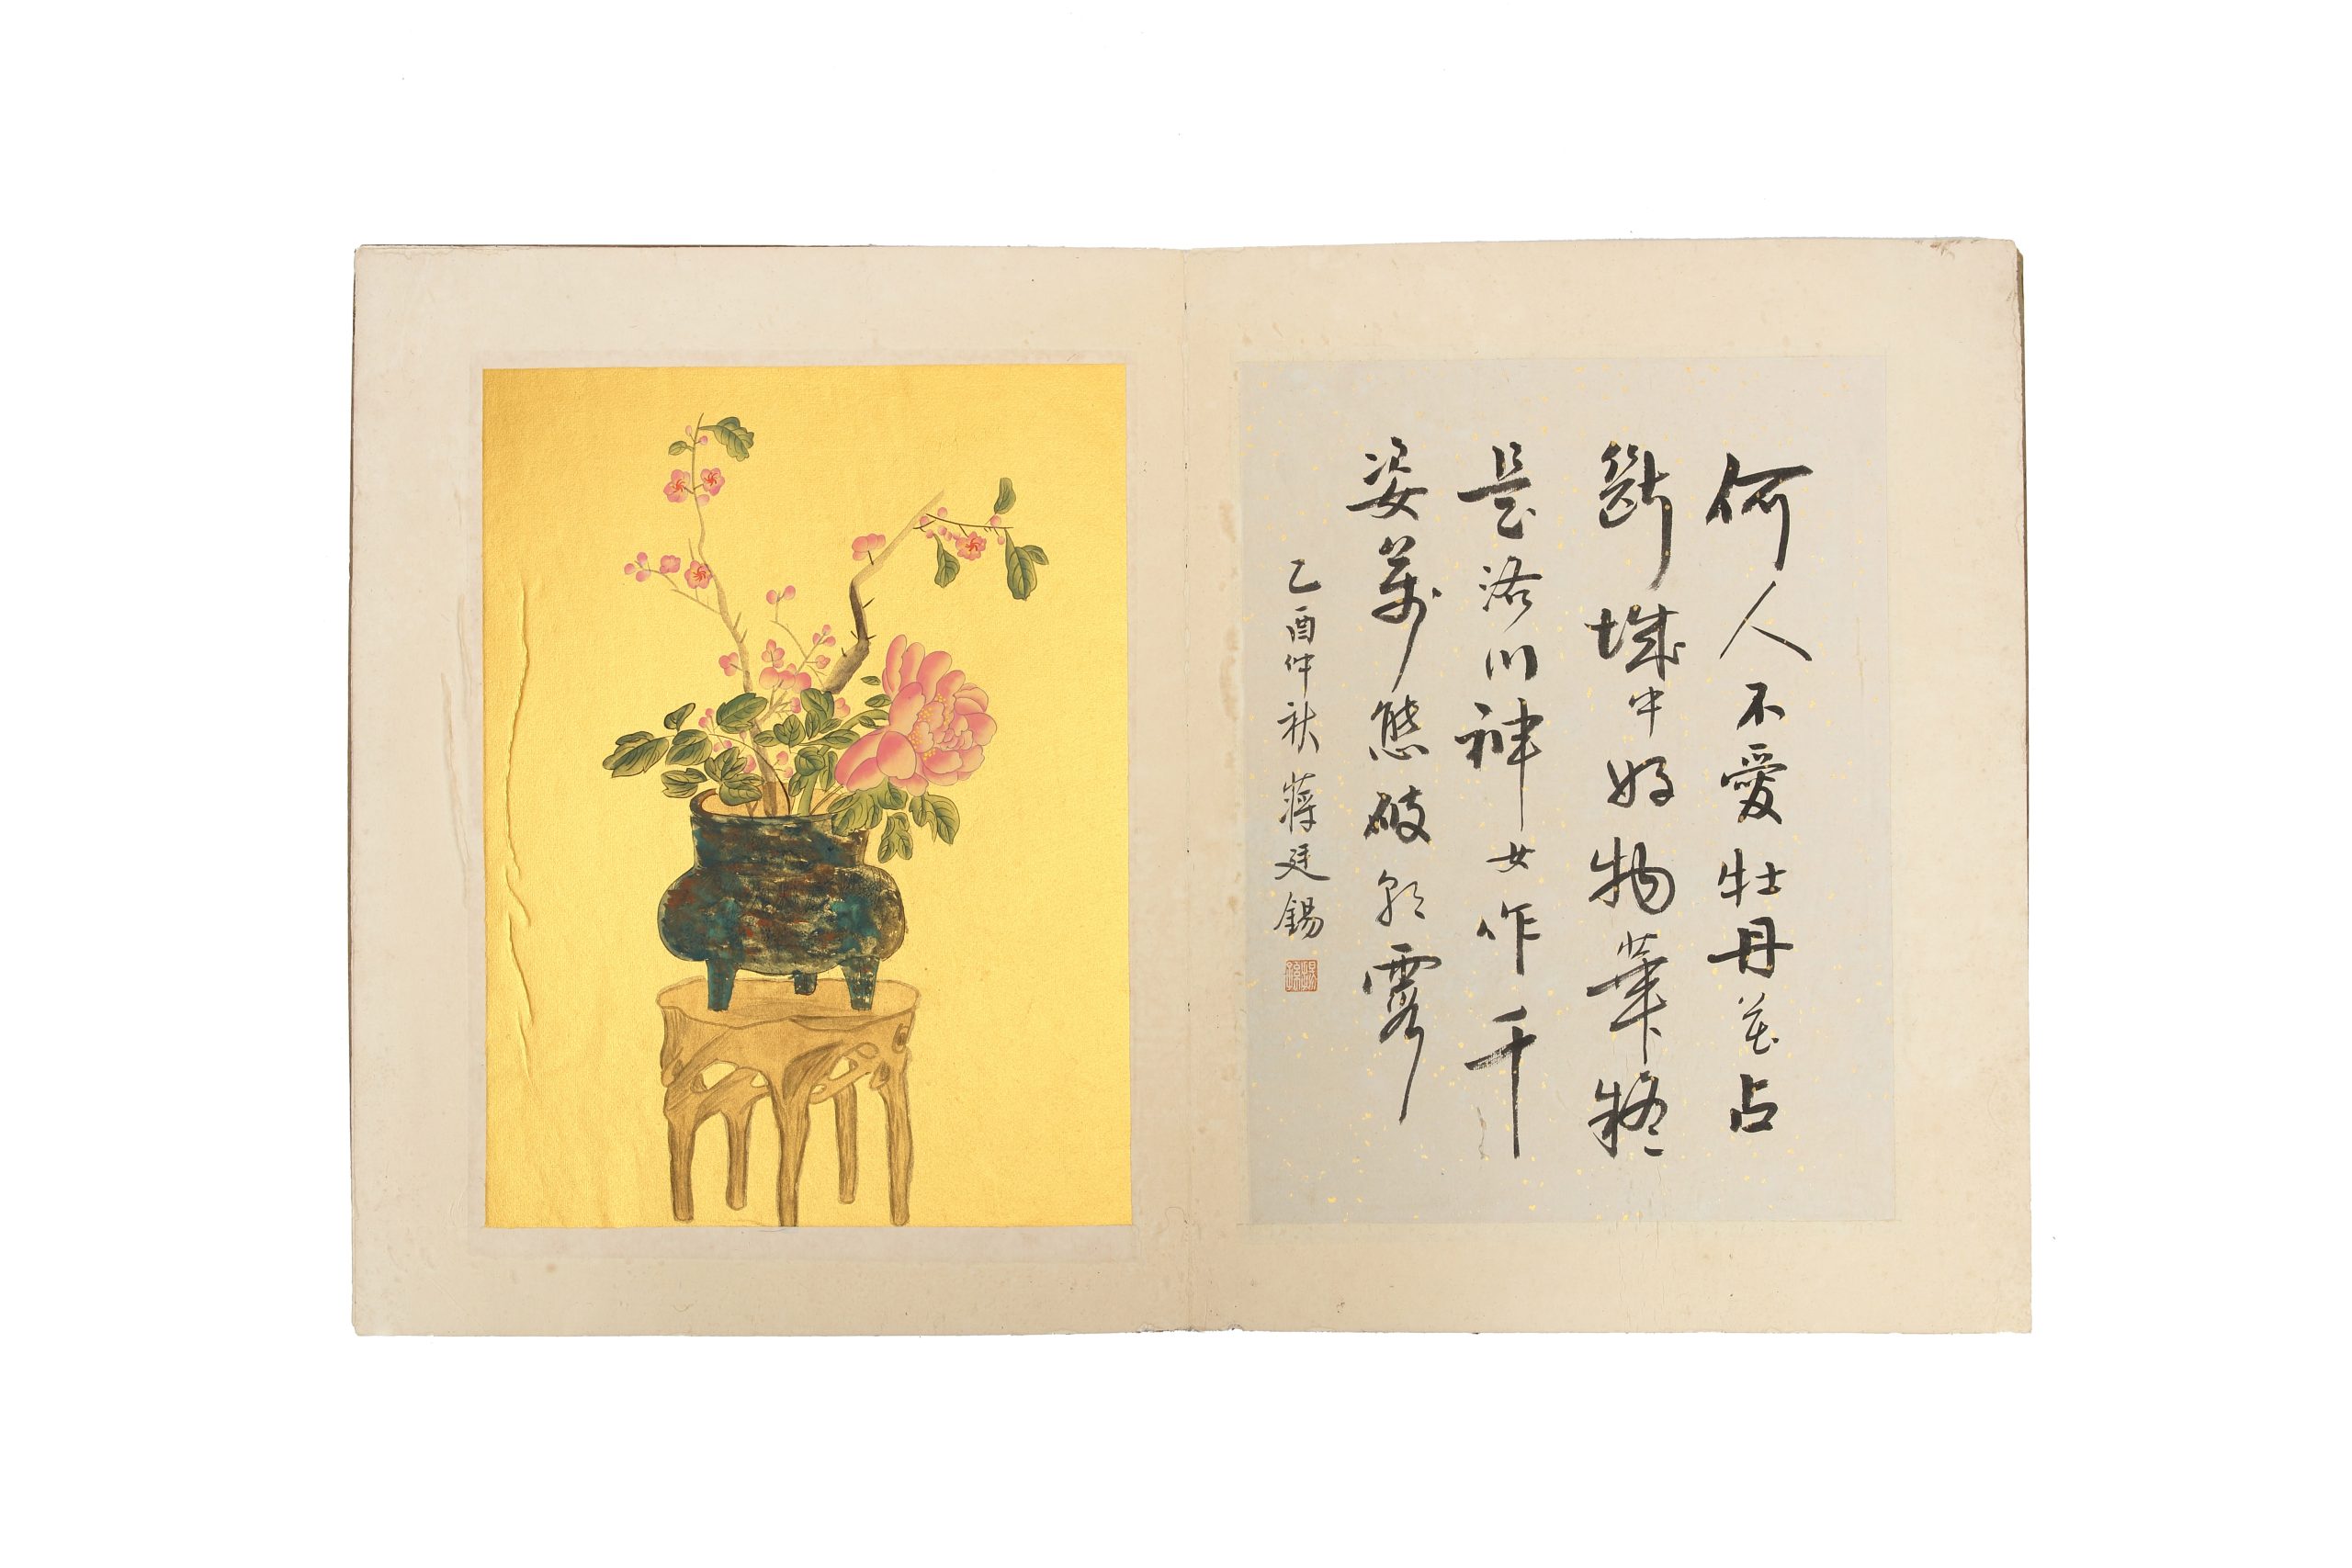 何人不愛牡丹花占
斷城中好物華疑
是洛川神女作千
姿萬態破朝霞
乙酉仲秋蔣廷錫
揚孫